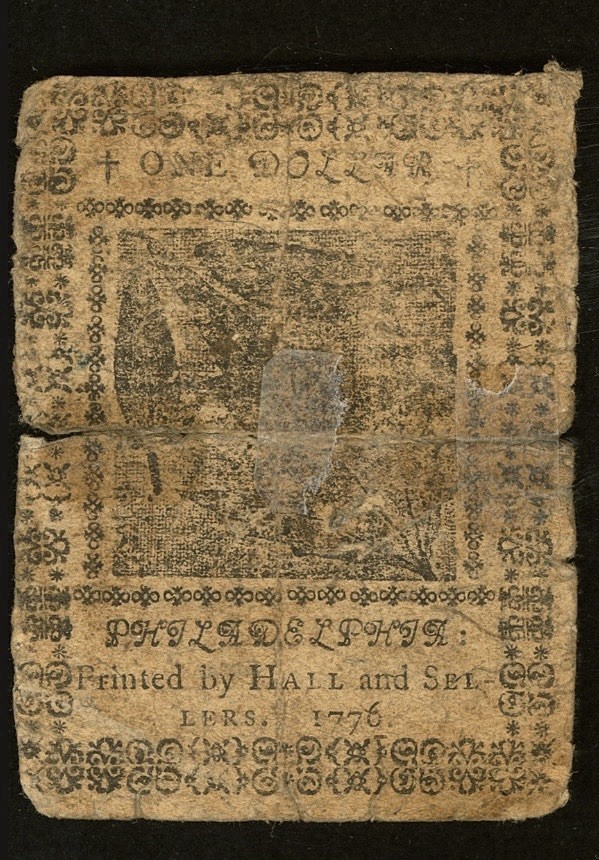 † ONE DOLLAR †
PHILADELPHIA:
Printed by HALL and SEL-
LERS. 1776.